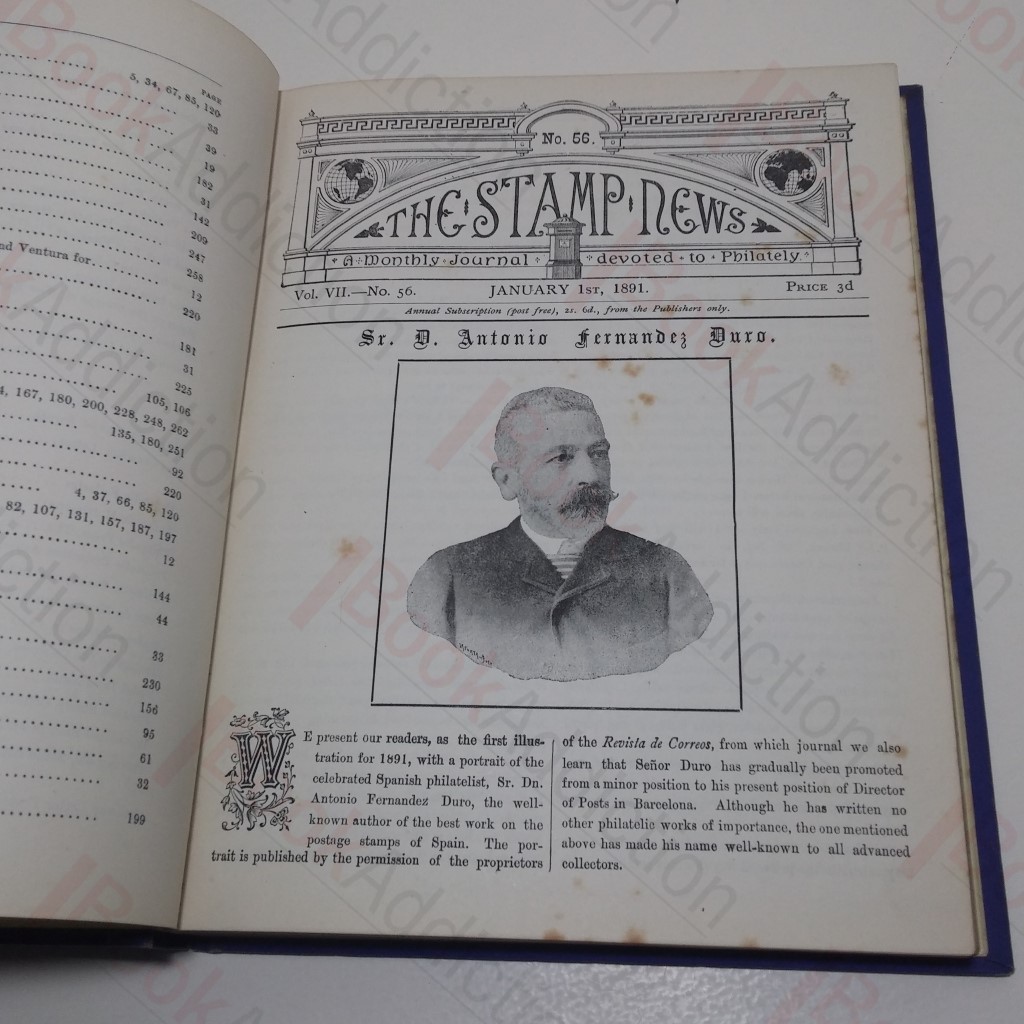 PAGE
5, 34, 67, 85, 120
33
39
19
182
31
142
209
247
nd Ventura for
258
12
220
181
31
225
105, 106
4, 167, 180, 200, 228, 248, 262
135, 180, 251
92
220
4, 37, 66, 85, 120
82, 107, 131, 157, 187, 197
12
144
44
33
230
156
95
61
32
199
No. 56.
THE STAMP NEWS
A Monthly Journal devoted to Philately.
Vol. VII.—No. 56. JANUARY 1ST, 1891. PRICE 3d
Annual Subscription (post free), 2s. 6d., from the Publishers only.
Sr. D. Antonio Fernandez Duro.
WE present our readers, as the first illus-
tration for 1891, with a portrait of the
celebrated Spanish philatelist, Sr. Dn.
Antonio Fernandez Duro, the well-
known author of the best work on the
postage stamps of Spain. The por-
trait is published by the permission of the proprietors
of the Revista de Correos, from which journal we also
learn that Señor Duro has gradually been promoted
from a minor position to his present position of Director
of Posts in Barcelona. Although he has written no
other philatelic works of importance, the one mentioned
above has made his name well-known to all advanced
collectors.
BookAddiction